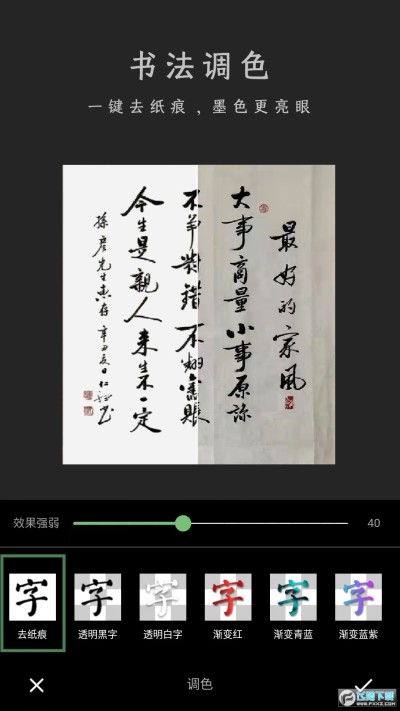 书法调色
一键去纸痕，墨色更亮眼
最好的家风
大事商量小事原谅
不争对错不翻旧账
今生是亲人来生不一定
孙彦先生惠存辛丑夏日仁
效果强弱
40
字
字
字
字
字
字
去纸痕
透明黑字
透明白字
渐变红
渐变青蓝
渐变蓝紫
调色
飞翔下载